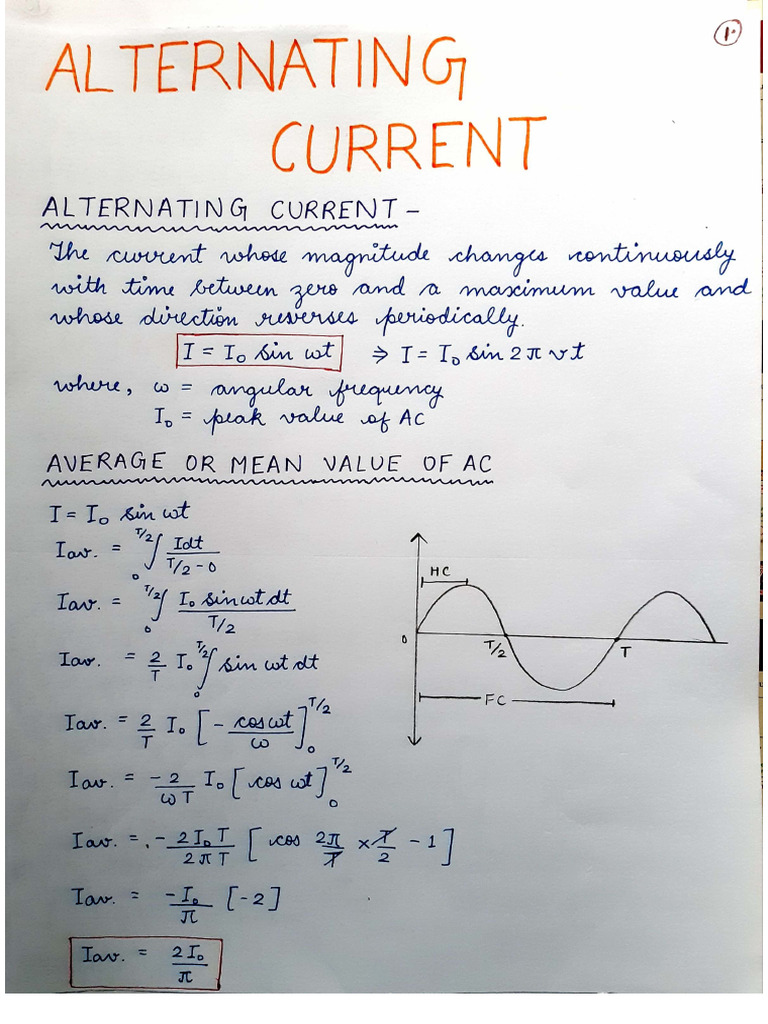 1.
ALTERNATING
CURRENT
ALTERNATING CURRENT -
The current whose magnitude changes continuously
with time between zero and a maximum value and
whose direction reverses periodically.
I = I₀ sin ωt ⇒ I = I₀ sin 2π νt
where, ω = angular frequency
I₀ = peak value of AC
AVERAGE OR MEAN VALUE OF AC
I = I₀ sin ωt
Iav. = ₀∫^T/2 Idt / (T/2 - 0)
Iav. = ₀∫^T/2 I₀ sin ωt dt / (T/2)
Iav. = 2/T I₀ ₀∫^T/2 sin ωt dt
Iav. = 2/T I₀ [- cos ωt / ω]₀^T/2
Iav. = -2/ωT I₀ [cos ωt]₀^T/2
Iav. = - 2I₀T / 2πT [cos 2π/T × T/2 - 1]
Iav. = -I₀/π [-2]
Iav. = 2I₀/π
HC
0
T/2
T
FC